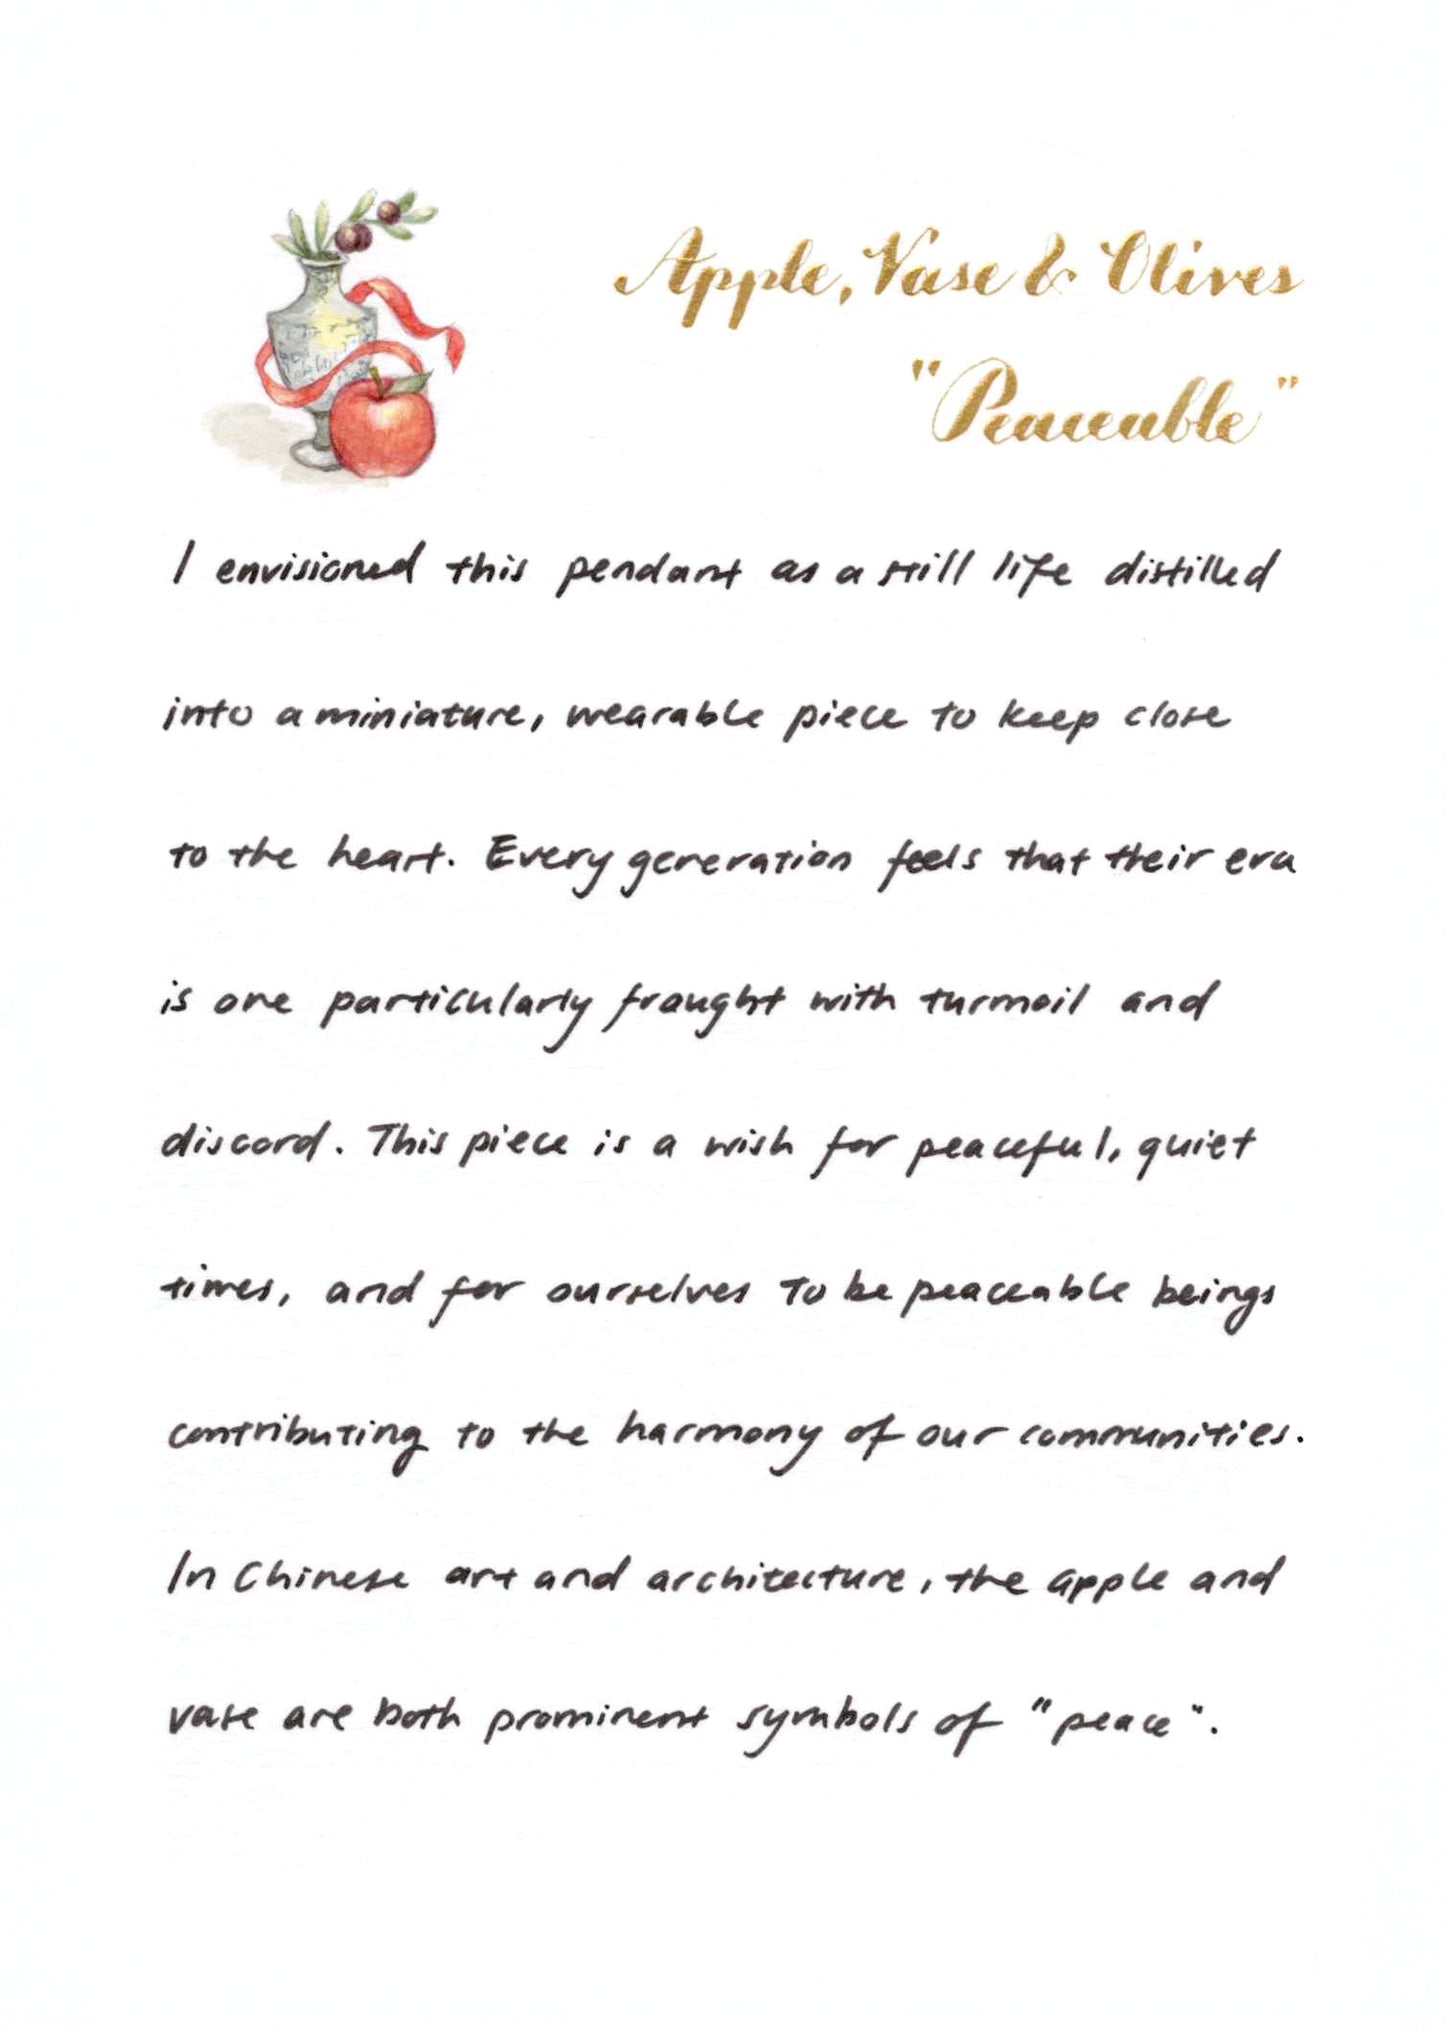 Apple, Vase & Olives
"Peaceable"
I envisioned this pendant as a still life distilled
into a miniature, wearable piece to keep close
to the heart. Every generation feels that their era
is one particularly fraught with turmoil and
discord. This piece is a wish for peaceful, quiet
times, and for ourselves to be peaceable beings
contributing to the harmony of our communities.
In Chinese art and architecture, the apple and
vase are both prominent symbols of "peace".